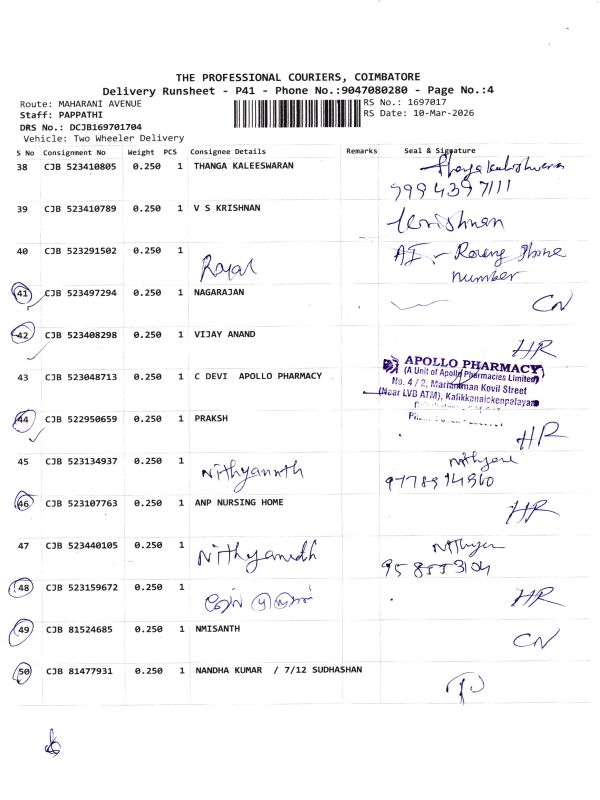 THE PROFESSIONAL COURIERS, COIMBATORE
Delivery Runsheet - P41 - Phone No.:9047080280 - Page No.:4
Route: MAHARANI AVENUE
RS No.: 1697017
Staff: PAPPATHI
RS Date: 10-Mar-2026
DRS No.: DCJB169701704
Vehicle: Two Wheeler Delivery
S No Consignment No Weight PCS Consignee Details Remarks Seal & Signature
38 CJB 523410805 0.250 1 THANGA KALEESWARAN
9994397111
39 CJB 523410789 0.250 1 V S KRISHNAN
40 CJB 523291502 0.250 1
number
41 CJB 523497294 0.250 1 NAGARAJAN CN
42 CJB 523408298 0.250 1 VIJAY ANAND HR
43 CJB 523048713 1 C DEVI APOLLO PHARMACY
APOLLO PHARMACY
(A Unit of Apollo Pharmacies Limited)
No. 4 / 2, Mariamman Kovil Street
(Near LVB ATM), Kalikkanaickenpalayam
44 CJB 522950659 0.250 1 PRAKSH HR
45 CJB 523134937 0.250 1
46 CJB 523107763 0.250 1 ANP NURSING HOME HR
47 CJB 523440105 0.250 1
48 CJB 523159672 0.250 1 HR
49 CJB 81524685 0.250 1 NMISANTH CN
50 CJB 81477931 0.250 1 NANDHA KUMAR / 7/12 SUDHASHAN